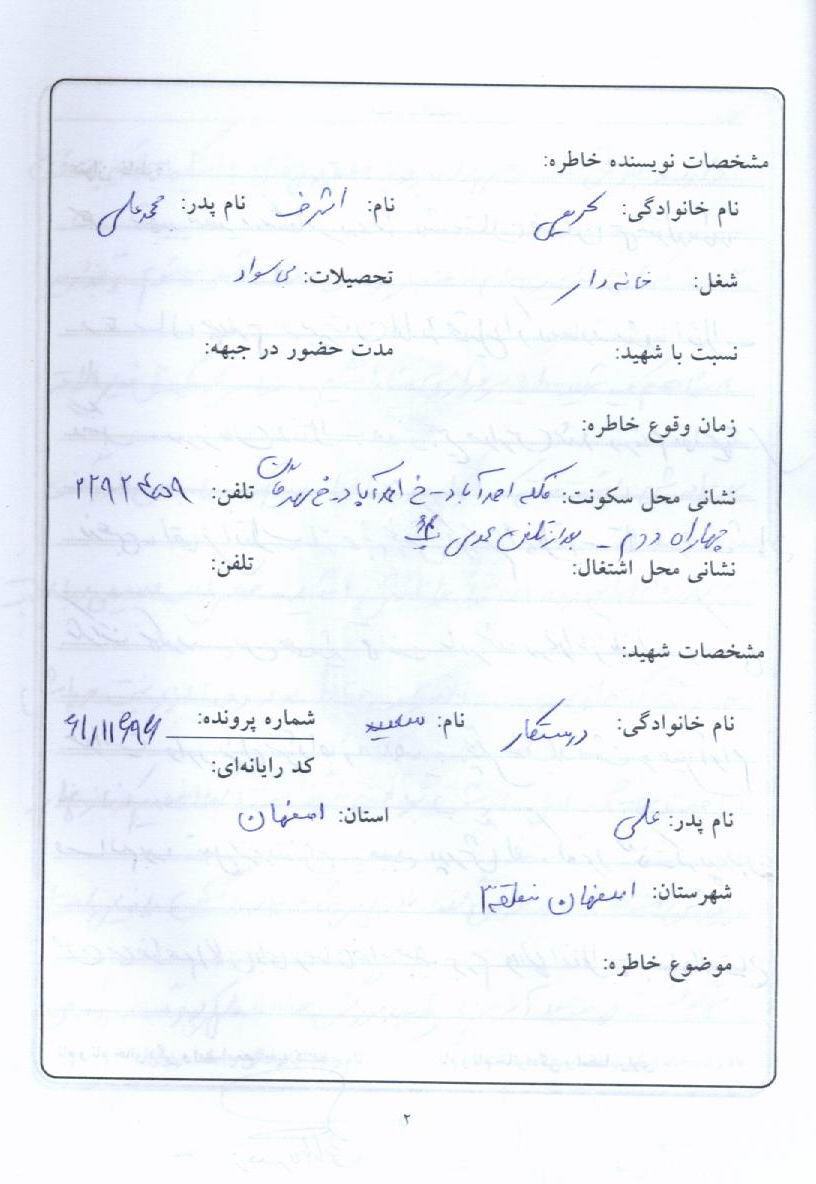 مشخصات نویسنده خاطره:
نام خانوادگی: کریمی نام: اشرف نام پدر: محمدعلی
شغل: خانه دار تحصیلات: بی سواد
نسبت با شهید: مدت حضور در جبهه:
زمان وقوع خاطره:
نشانی محل سکونت: فلکه احمدآباد - خ احمدآباد - خ تلفن:
چهارراه دوم - بعد از تلفن عمومی
نشانی محل اشتغال: تلفن:
مشخصات شهید:
نام خانوادگی: درستکار نام: سعید شماره پرونده:
کد رایانه‌ای:
نام پدر: علی استان: اصفهان
شهرستان: اصفهان منطقه
موضوع خاطره:
۲